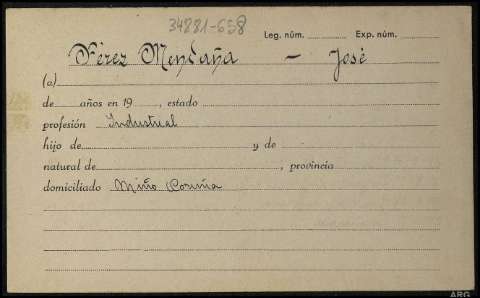 34881-658
Leg. núm. Exp. núm.
Pérez Mendaña - José
(a)
de años en 19 , estado
profesión Industrial
hijo de y de
natural de , provincia
domiciliado Miño Coruña
ARG